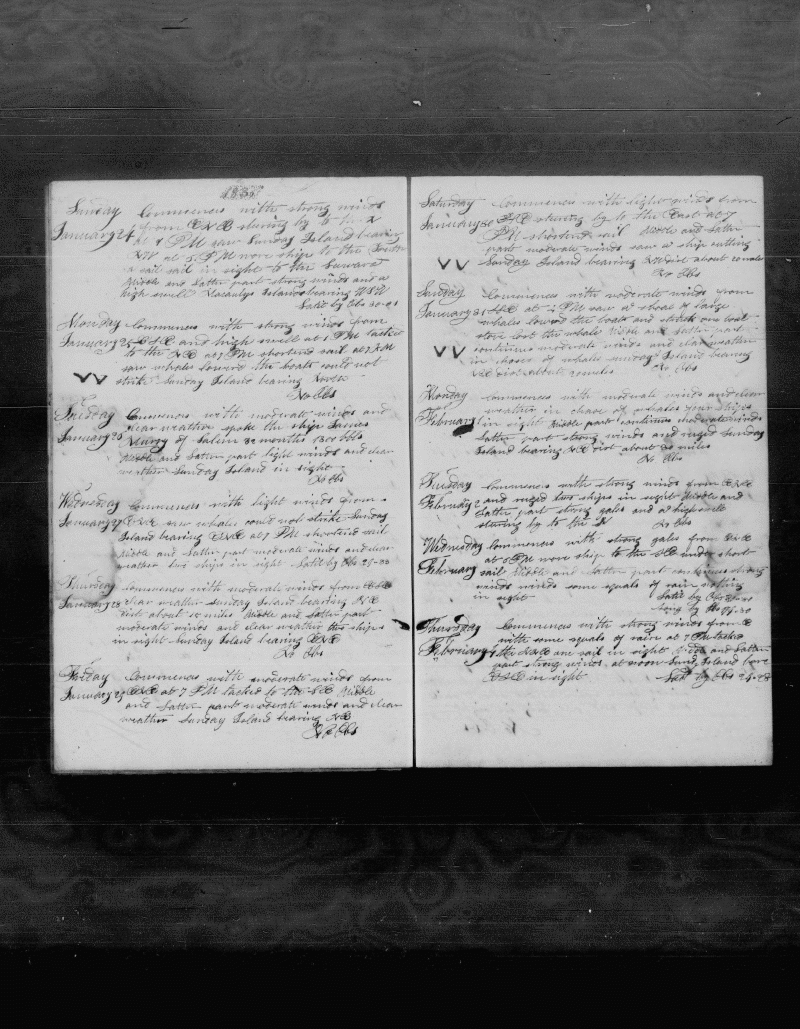 Sunday Commences with strong winds
January 24 from ENE steering by to the N
at 7 PM saw Sunday Island bearing
at 5 PM more ship to the
a sail in sight to the
Middle and Latter part strong winds and a
high swell Islands bearing WSW
Latt by Obs 30-01
Monday Commences with strong winds from
January 25 ESE and high swell at 1 PM tacked
to the NE at 7 PM shortend sail at 7 AM
saw whales lowerd the boats could not
strike Sunday Island bearing
No Obs
Tuesday Commences with moderate winds and
January 26 clear weather spoke the ship James
of Salem 32 months 1300 bbls
Middle and Latter part light winds and clear
weather Sunday Island in sight
No Obs
Wednesday Commences with light winds from
January 27 ENE saw whales could not strike Sunday
Island bearing at 7 PM shortend sail
Middle and Latter part moderate winds and clear
weather two ships in sight Latt by Obs 29-33
Thursday Commences with moderate winds from
January 28 clear weather Sunday Island bearing
dist about miles Middle and Latter part
moderate winds and clear weather two ships
in sight Sunday Island bearing ENE
No Obs
Friday Commences with moderate winds from
January 29 ENE at 7 PM tacked to the SE Middle
and Latter part moderate winds and clear
weather Sunday Island bearing NE
No Obs
Saturday Commences with light winds from
January 30 steering by to the East at 7
PM shortend sail Middle and Latter
part moderate winds saw a ship cutting
Sunday Island bearing dist about 20 miles
No Obs
Sunday Commences with moderate winds from
January 31 at 2 PM saw a shoal of large
whales lowerd the boats and struck one boat
stove lost the whale Middle and Latter part
continues moderate winds and clear weather
in chace of whales Sunday Island bearing
dist about miles No Obs
Monday Commences with moderate winds and clear
February 1 weather in chace of whales four ships
in sight Middle part continues moderate winds
Latter part strong winds and Sunday
Island bearing dist about 30 miles
No Obs
Tuesday Commences with strong winds from ENE
February 2 and two ships in sight Middle and
Latter part strong gales and a high swell
steering by to the N No Obs
Wednesday Commences with strong gales from
February at 6 PM more ship to the SE under short
sail Middle and Latter part continues strong
winds some squals of rain nothing
in sight Latt by Obs
Long by
Thursday Commences with strong winds from E
February with some squals of rain at 7 PM tacked
to the one sail in sight Middle and Latter
part strong winds at noon Sund Island bore
ESE in sight Latt by Obs 29-28